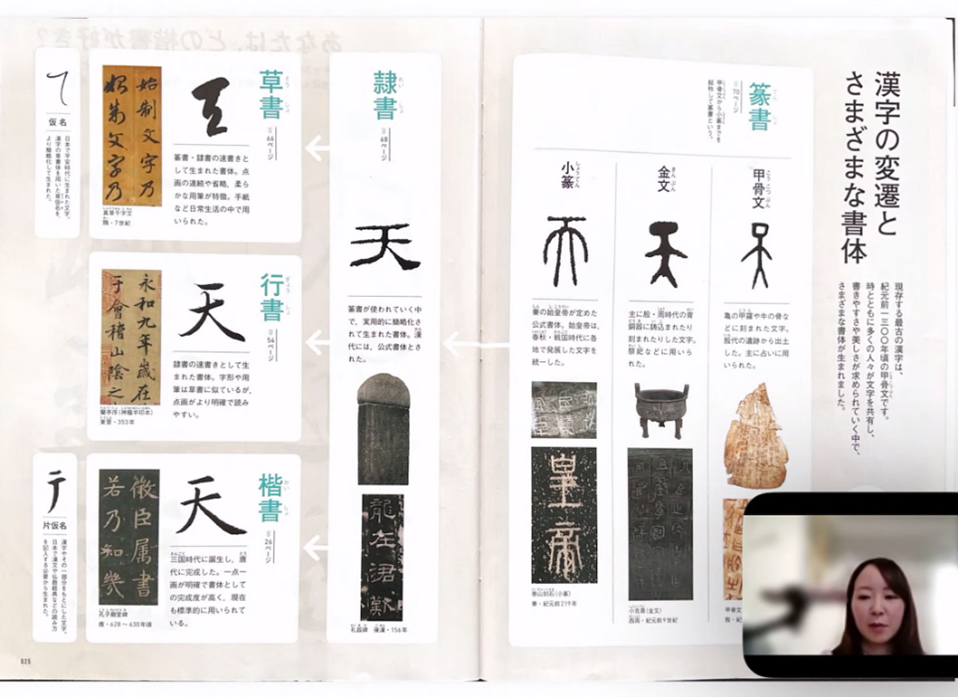 漢字の変遷と
さまざまな書体
現存する最古の漢字は、
紀元前一三〇〇年頃の甲骨文です。
時とともに多くの人々が文字を共有し、
書きやすさや美しさが求められていく中で、
さまざまな書体が生まれました。
篆書
てんしょ
70ページ
甲骨文から小篆までを
総称して篆書という。
甲骨文
こうこつぶん
亀の甲羅や牛の骨な
どに刻まれた文字。
殷代の遺跡から出土
した。主に占いに用
いられた。
甲骨文
金文
きんぶん
主に殷・周時代の青
銅器に鋳込まれたり
刻まれたりした文字。
祭祀などに用いら
れた。
西周・紀元前9世紀
小篆
しょうてん
秦の始皇帝が定めた
公式書体。始皇帝は、
春秋・戦国時代に各
地で発展した文字を
統一した。
皇帝
泰山刻石(小篆)
秦・紀元前219年
隷書
れいしょ
68ページ
天
篆書が使われていく中
で、実用的に簡略化さ
れて生まれた書体。漢
代には、公式書体とさ
れた。
礼器碑 後漢・156年
草書
そうしょ
64ページ
篆書・隷書の速書きと
して生まれた書体。点
画の連続や省略、柔ら
かな用筆が特徴。手紙
など日常生活の中で用
いられた。
始制文字乃
始制文字乃
真草千字文
隋・7世紀
行書
ぎょうしょ
54ページ
天
隷書の速書きとして生
まれた書体。字形や用
筆は草書に似ているが、
点画がより明確で読み
やすい。
永和九年歳在
于會稽山陰之
蘭亭序(神龍半印本)
東晋・353年
楷書
かいしょ
26ページ
天
三国時代に誕生し、唐
代に完成した。一点一
画が明確で書体として
の完成度が高く、現在
も標準的に用いられて
いる。
微臣属書
若乃知幾
孔子廟堂碑
唐・628〜630年頃
て
仮名
日本で平安時代に生まれた文字。
漢字の草書体を用いた草仮名を、
より簡略化して生まれた。
テ
片仮名
漢字やその一部分をもとにした文字。
日本で漢文や仏教経典などの読み方
を記入する必要から生まれた。
025